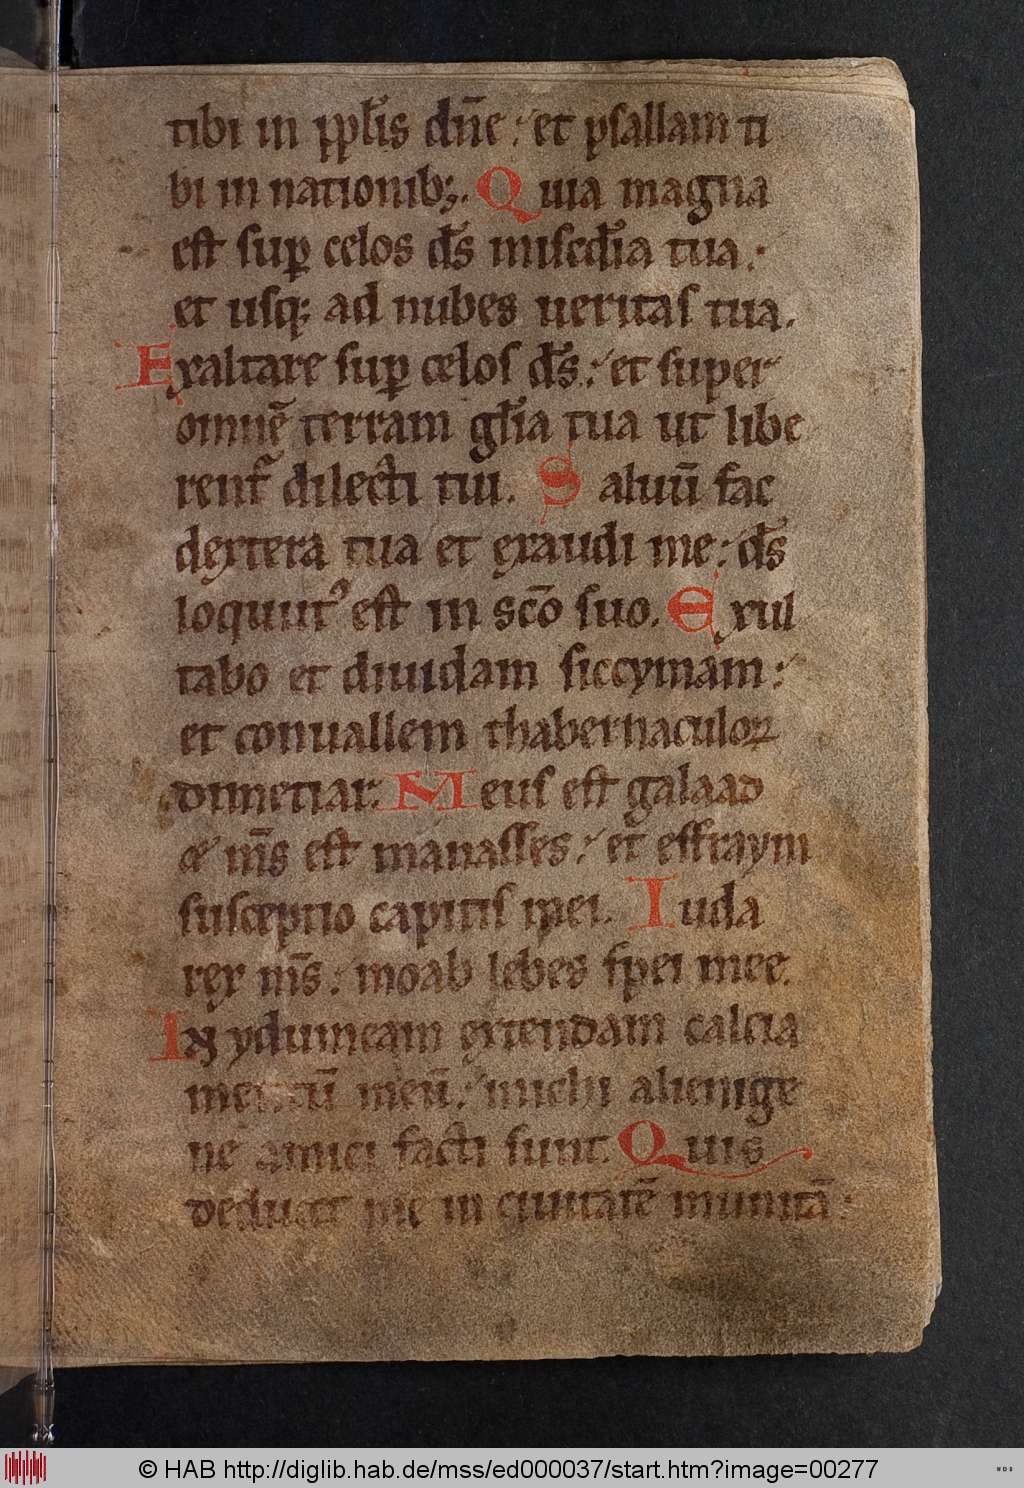 tibi in pp̅lis dn̅e : et psallam ti
bi in nationib;. Quia magna
est sup̲ celos ds̅ misc̅dia tua :
et usq; ad nubes ueritas tua.
Exaltare sup̲ celos ds̅ : et super
omnē terram gl̅ia tua ut libe
rent᷑ dilecti tui. Saluū fac
dextera tua et exaudi me : ds̅
loquut᷒ est in sc̅o suo. Exul
tabo et diuidam siccymam :
et conuallem thabernaculoꝝ
dimetiar. Meus est galaad
& ms̅ est manasses : et effraym
susceptio capitis mei. Iuda
rex ms̅ : moab lebes spei mee.
In ydumeam extendam calcia
mentū meū : michi alienige
ne amici facti sunt. Quis
deducit me in ciuitatē munitā :
© HAB http://diglib.hab.de/mss/ed000037/start.htm?image=00277